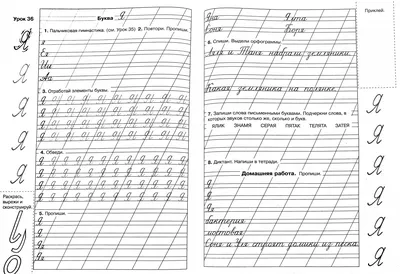 Урок 36
Буква Я
1. Пальчиковая гимнастика. (см. Урок 35) 2. Повтори. Пропиши.
Я
Я
Ш
Аа
3. Отработай элементы буквы.
4. Обведи.
5. Пропиши.
Я
Я
Яя
Яя
Раскрась, вырежи и сконструируй.
Яна
Соня
Юля
6. Спиши. Выдели орфограммы.
Юля и Таня набрали земляники.
Какая земляника на полянке.
7. Запиши слова письменными буквами. Подчеркни слова, в которых звуков столько же, сколько и букв.
ЯЛИК ЗНАМЯ СЕРАЯ ПЯТАК ТЕЛЯТА ЗАТЕЯ
8. Диктант. Напиши в тетради.
Домашняя работа. Пропиши.
Я
Я
Я
бактерия
мостовая
Соня и Уля строят домики из песка.
Приклей.
Я
Я
Я
Я
Я